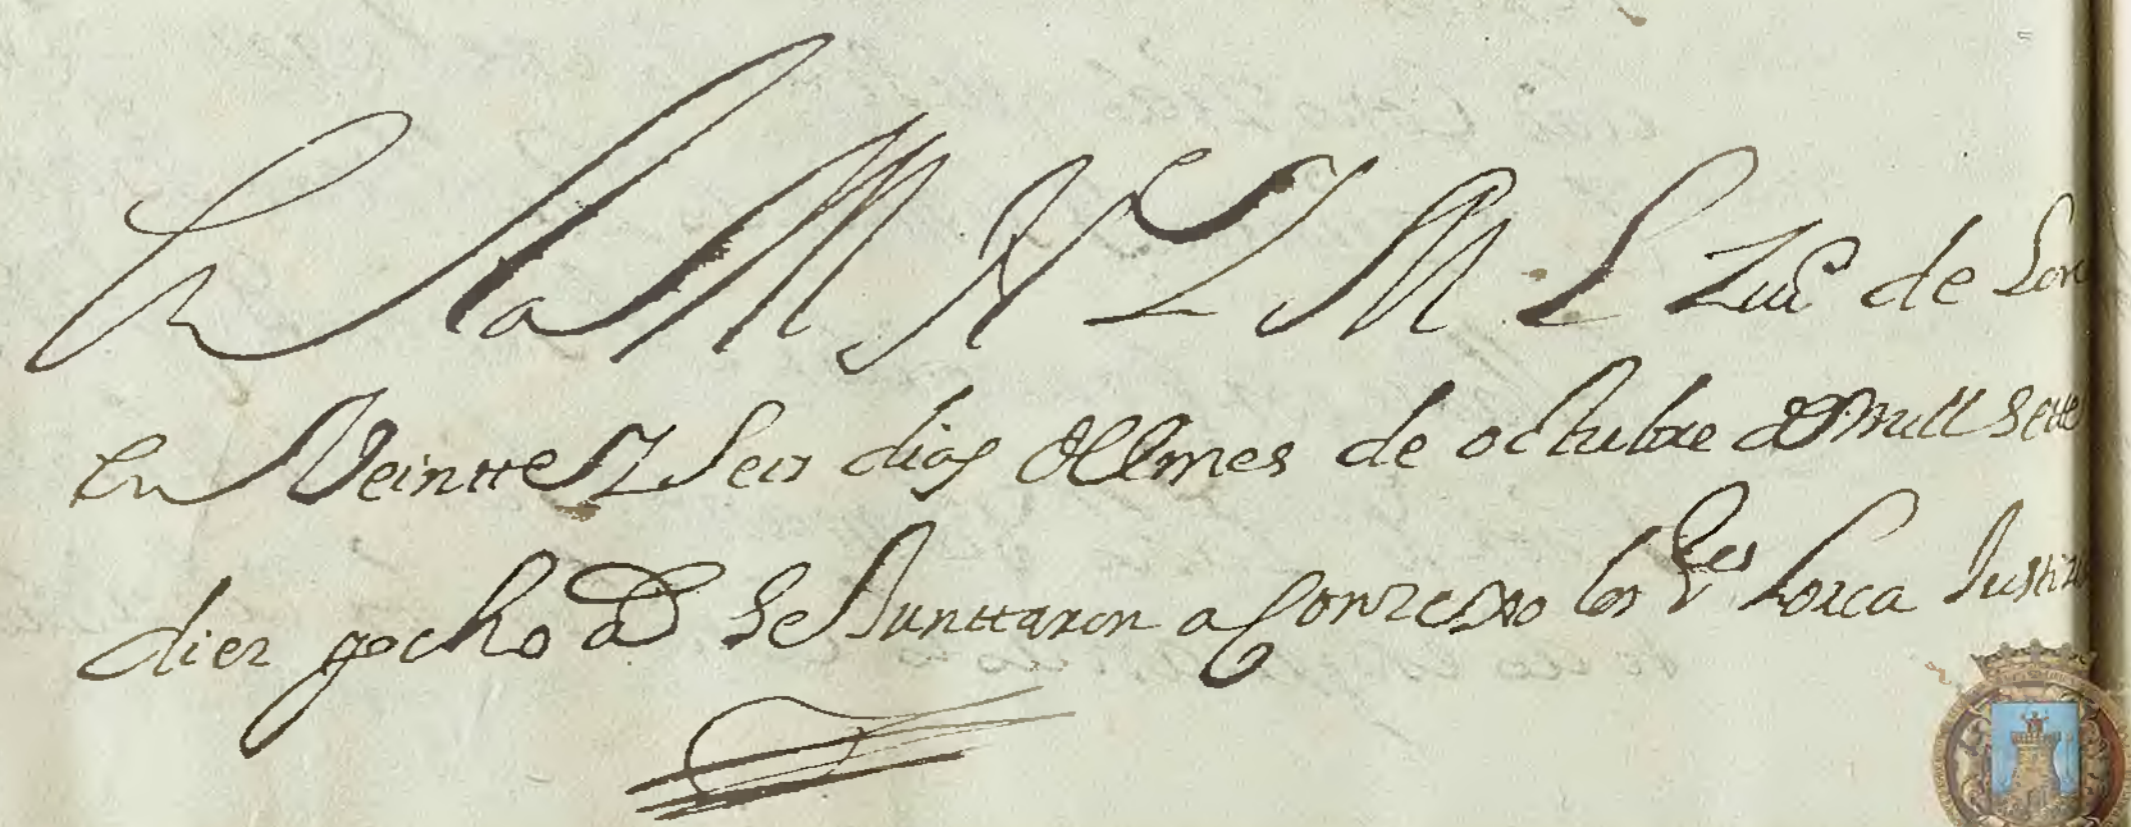 En la M N Y M L Ziu.d de Lorc
en Veintte Y Seis dias del mes de octubre de mill sette
diez y ocho as Se Junttaron a Conzexo los Ses Lorca Justizia